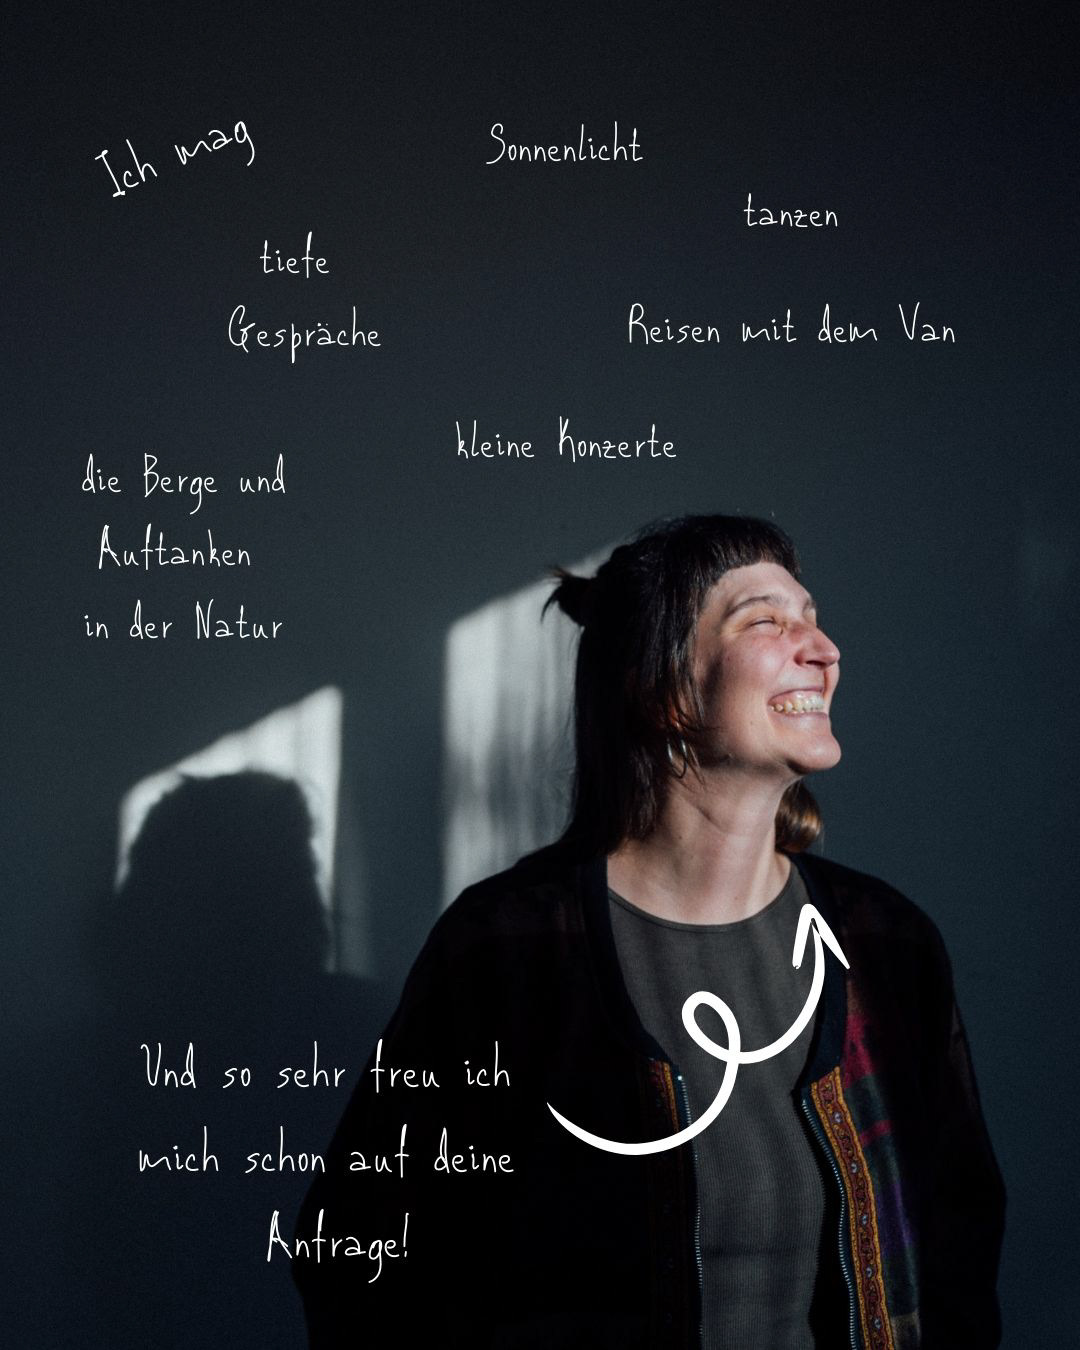 Ich mag
Sonnenlicht
tanzen
tiefe
Gespräche
Reisen mit dem Van
kleine Konzerte
die Berge und
Auftanken
in der Natur
Und so sehr freu ich
mich schon auf deine
Anfrage!